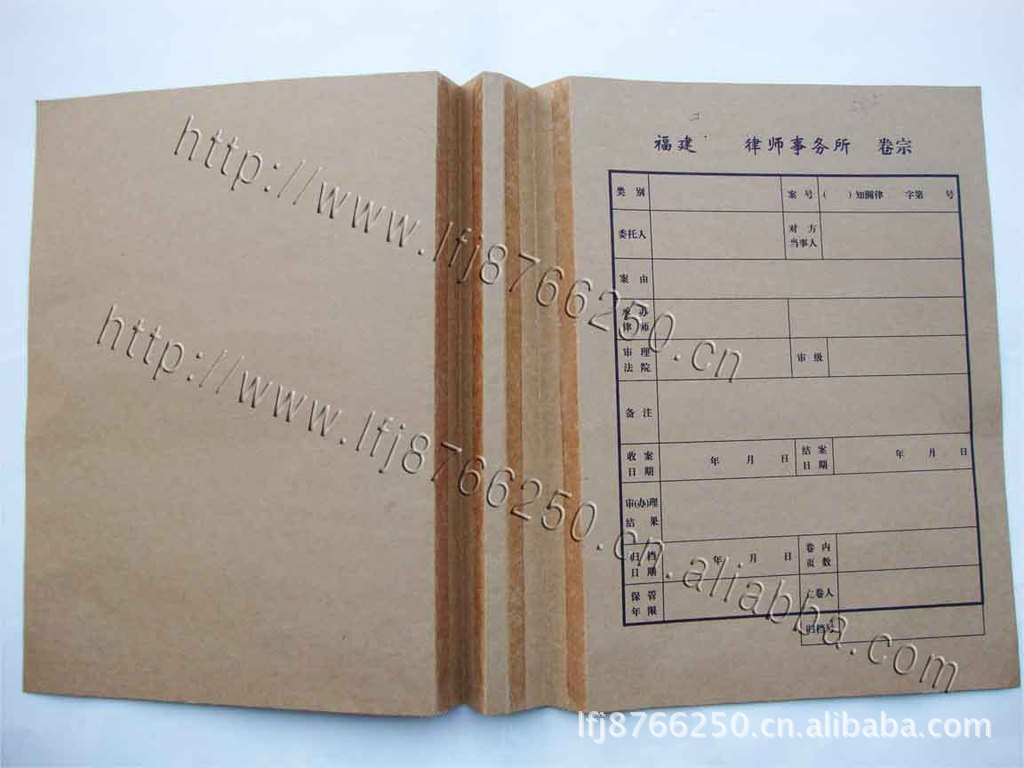 福建 律师事务所 卷宗
类别 案号 ( )知圆律 字第 号
委托人 对方当事人
案由
承办律师
审理法院 审级
备注
收案日期 年 月 日 结案日期 年 月 日
审(办)理结果
归档日期 年 月 日 卷内页数
保管年限 立卷人
归档号
http://www.lfj8766250.cn
http://www.lfj8766250.cn.alibaba.com
lfj8766250.cn.alibaba.com